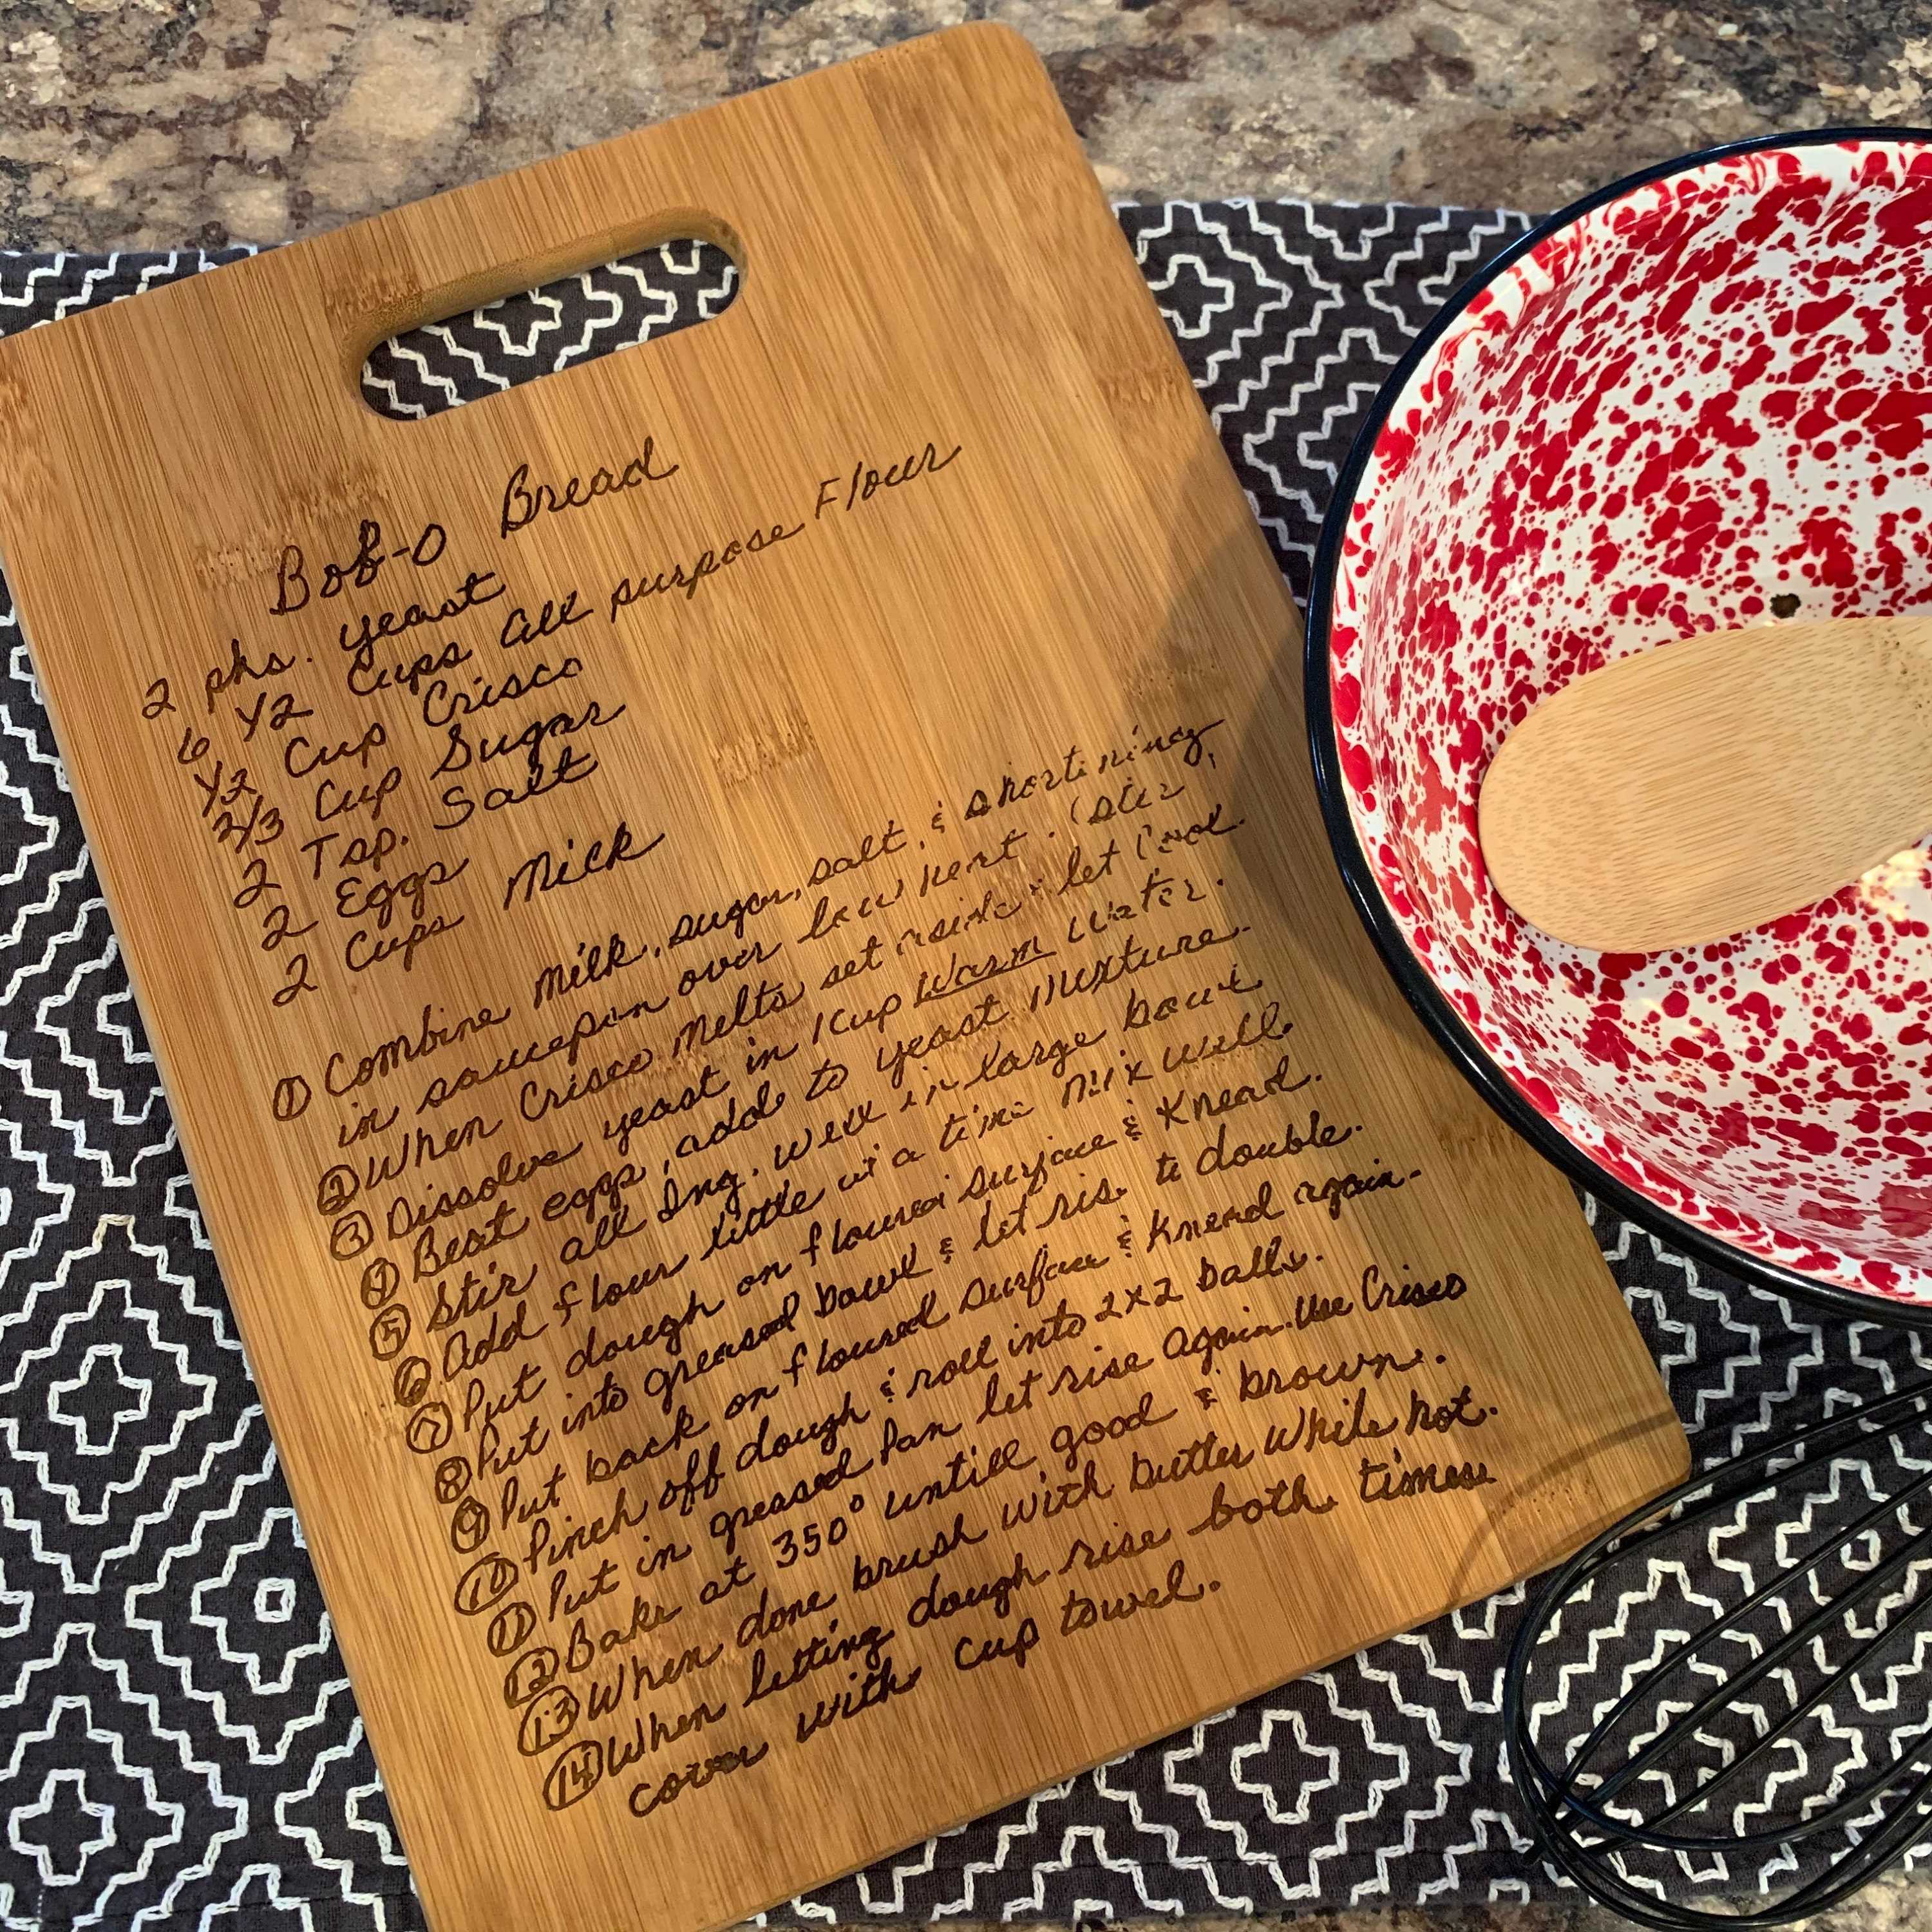 Bob-O Bread
2 pks. yeast
6 1/2 Cups All purpose Flour
1/2 Cup Crisco
2/3 Cup Sugar
2 Tsp. Salt
2 Eggs
2 Cups Milk
① Combine Milk, sugar, salt, & shortining
in saucepan over low heat. (stir)
② When Crisco Melts set aside & let Cool.
③ Dissolve yeast in 1 Cup Warm Water.
④ Beat eggs, add to yeast Mixture.
⑤ Stir all Ing. well in large bowl
⑥ Add flour little at a time Mix well.
⑦ Put dough on floured surface & Knead.
⑧ Put into greased bowl & let rise to double.
⑨ Put back on floured surface & Knead again.
⑩ Pinch off dough & roll into 2x2 balls.
⑪ Put in greased Pan let rise Again. Use Crisco
⑫ Bake at 350° untill good & brown.
⑬ When done brush with butter While hot.
⑭ When letting dough rise both times
cover with cup towel.